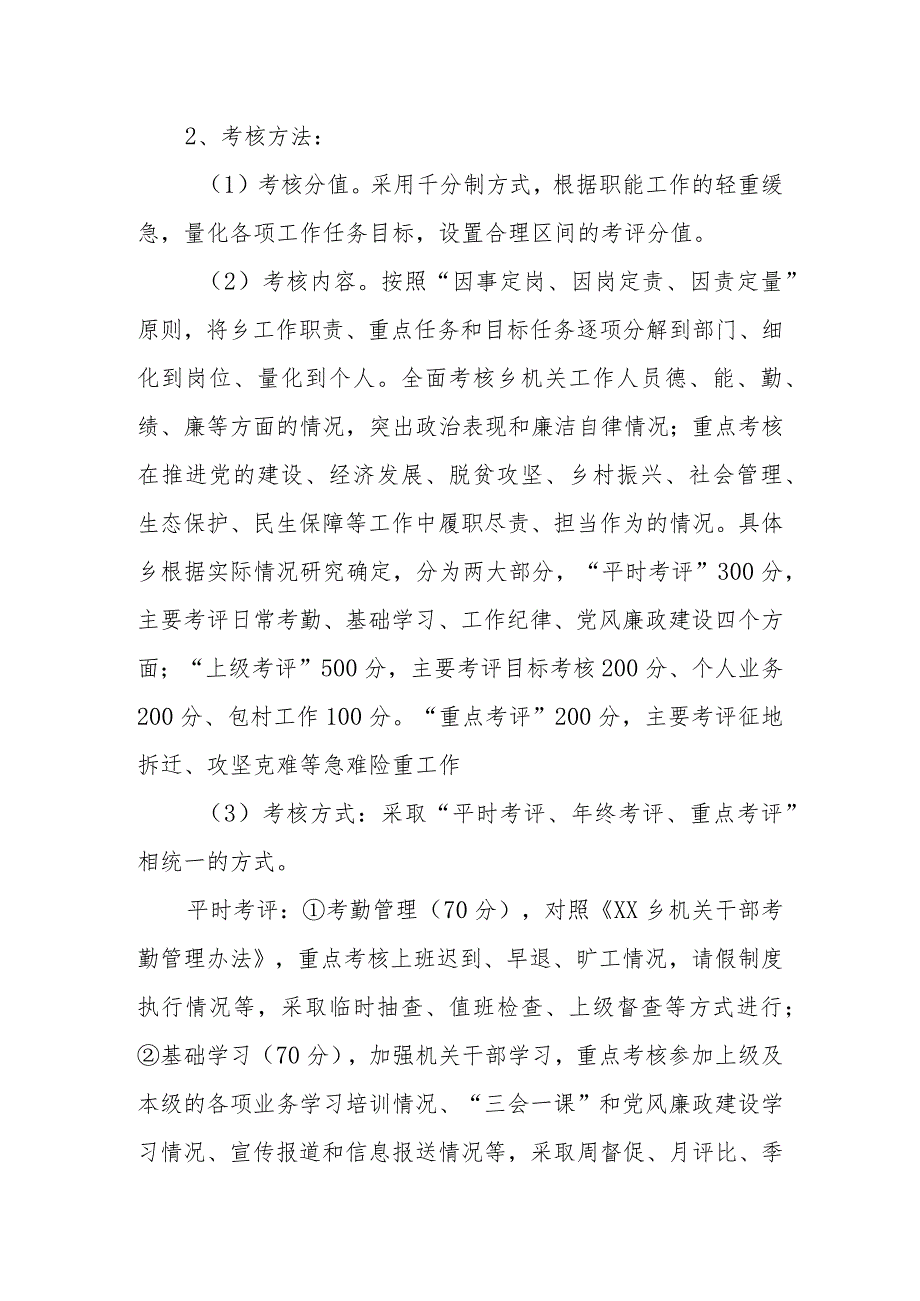 2、考核方法：
（1）考核分值。采用千分制方式，根据职能工作的轻重缓
急，量化各项工作任务目标，设置合理区间的考评分值。
（2）考核内容。按照“因事定岗、因岗定责、因责定量”
原则，将乡工作职责、重点任务和目标任务逐项分解到部门、细
化到岗位、量化到个人。全面考核乡机关工作人员德、能、勤、
绩、廉等方面的情况，突出政治表现和廉洁自律情况；重点考核
在推进党的建设、经济发展、脱贫攻坚、乡村振兴、社会管理、
生态保护、民生保障等工作中履职尽责、担当作为的情况。具体
乡根据实际情况研究确定，分为两大部分，“平时考评”300分，
主要考评日常考勤、基础学习、工作纪律、党风廉政建设四个方
面；“上级考评”500分，主要考评目标考核200分、个人业务
200分、包村工作100分。“重点考评”200分，主要考评征地
拆迁、攻坚克难等急难险重工作
（3）考核方式：采取“平时考评、年终考评、重点考评”
相统一的方式。
平时考评：①考勤管理（70分），对照《XX乡机关干部考
勤管理办法》，重点考核上班迟到、早退、旷工情况，请假制度
执行情况等，采取临时抽查、值班检查、上级督查等方式进行；
②基础学习（70分），加强机关干部学习，重点考核参加上级及
本级的各项业务学习培训情况、“三会一课”和党风廉政建设学
习情况、宣传报道和信息报送情况等，采取周督促、月评比、季